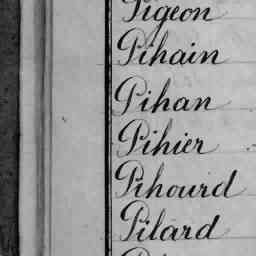 Pigeon
Pihain
Pihan
Pihier
Pihourd
Pilard